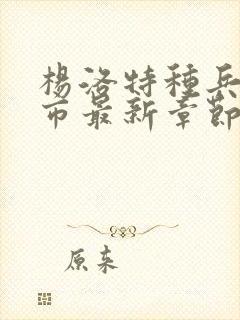 楊洛特種兵
市最新章節
原來